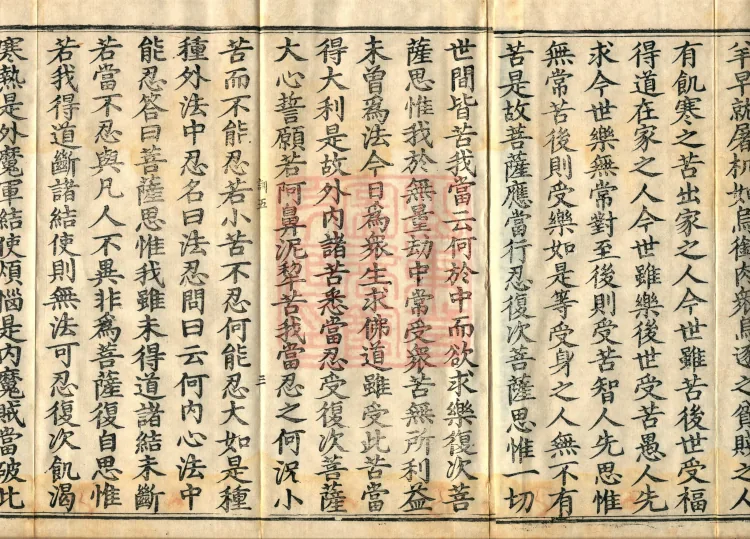 羊早就屠机如烏銜肉衆烏逐之貧賤之人
有飢寒之苦出家之人今世雖苦後世受福
得道在家之人今世雖樂後世受苦愚人先
求今世樂無常對至後則受苦智人先思惟
無常苦後則受樂如是等受身之人無不有
苦是故菩薩應當行忍復次菩薩思惟一切
世間皆苦我當云何於中而欲求樂復次菩
薩思惟我於無量劫中常受衆苦無所利益
未曾爲法今日爲衆生求佛道雖受此苦當
得大利是故外内諸苦悉當忍受復次菩薩
大心誓願若阿鼻泥犂苦我當忍之何況小
三
苦而不能忍若小苦不忍何能忍大如是種
種外法中忍名曰法忍問曰云何内心法中
能忍答曰菩薩思惟我雖未得道諸結未斷
若當不忍與凡人不異非爲菩薩復自思惟
若我得道斷諸結使則無法可忍復次飢渴
寒熱是外魔軍結使煩惱是内魔賊當破此